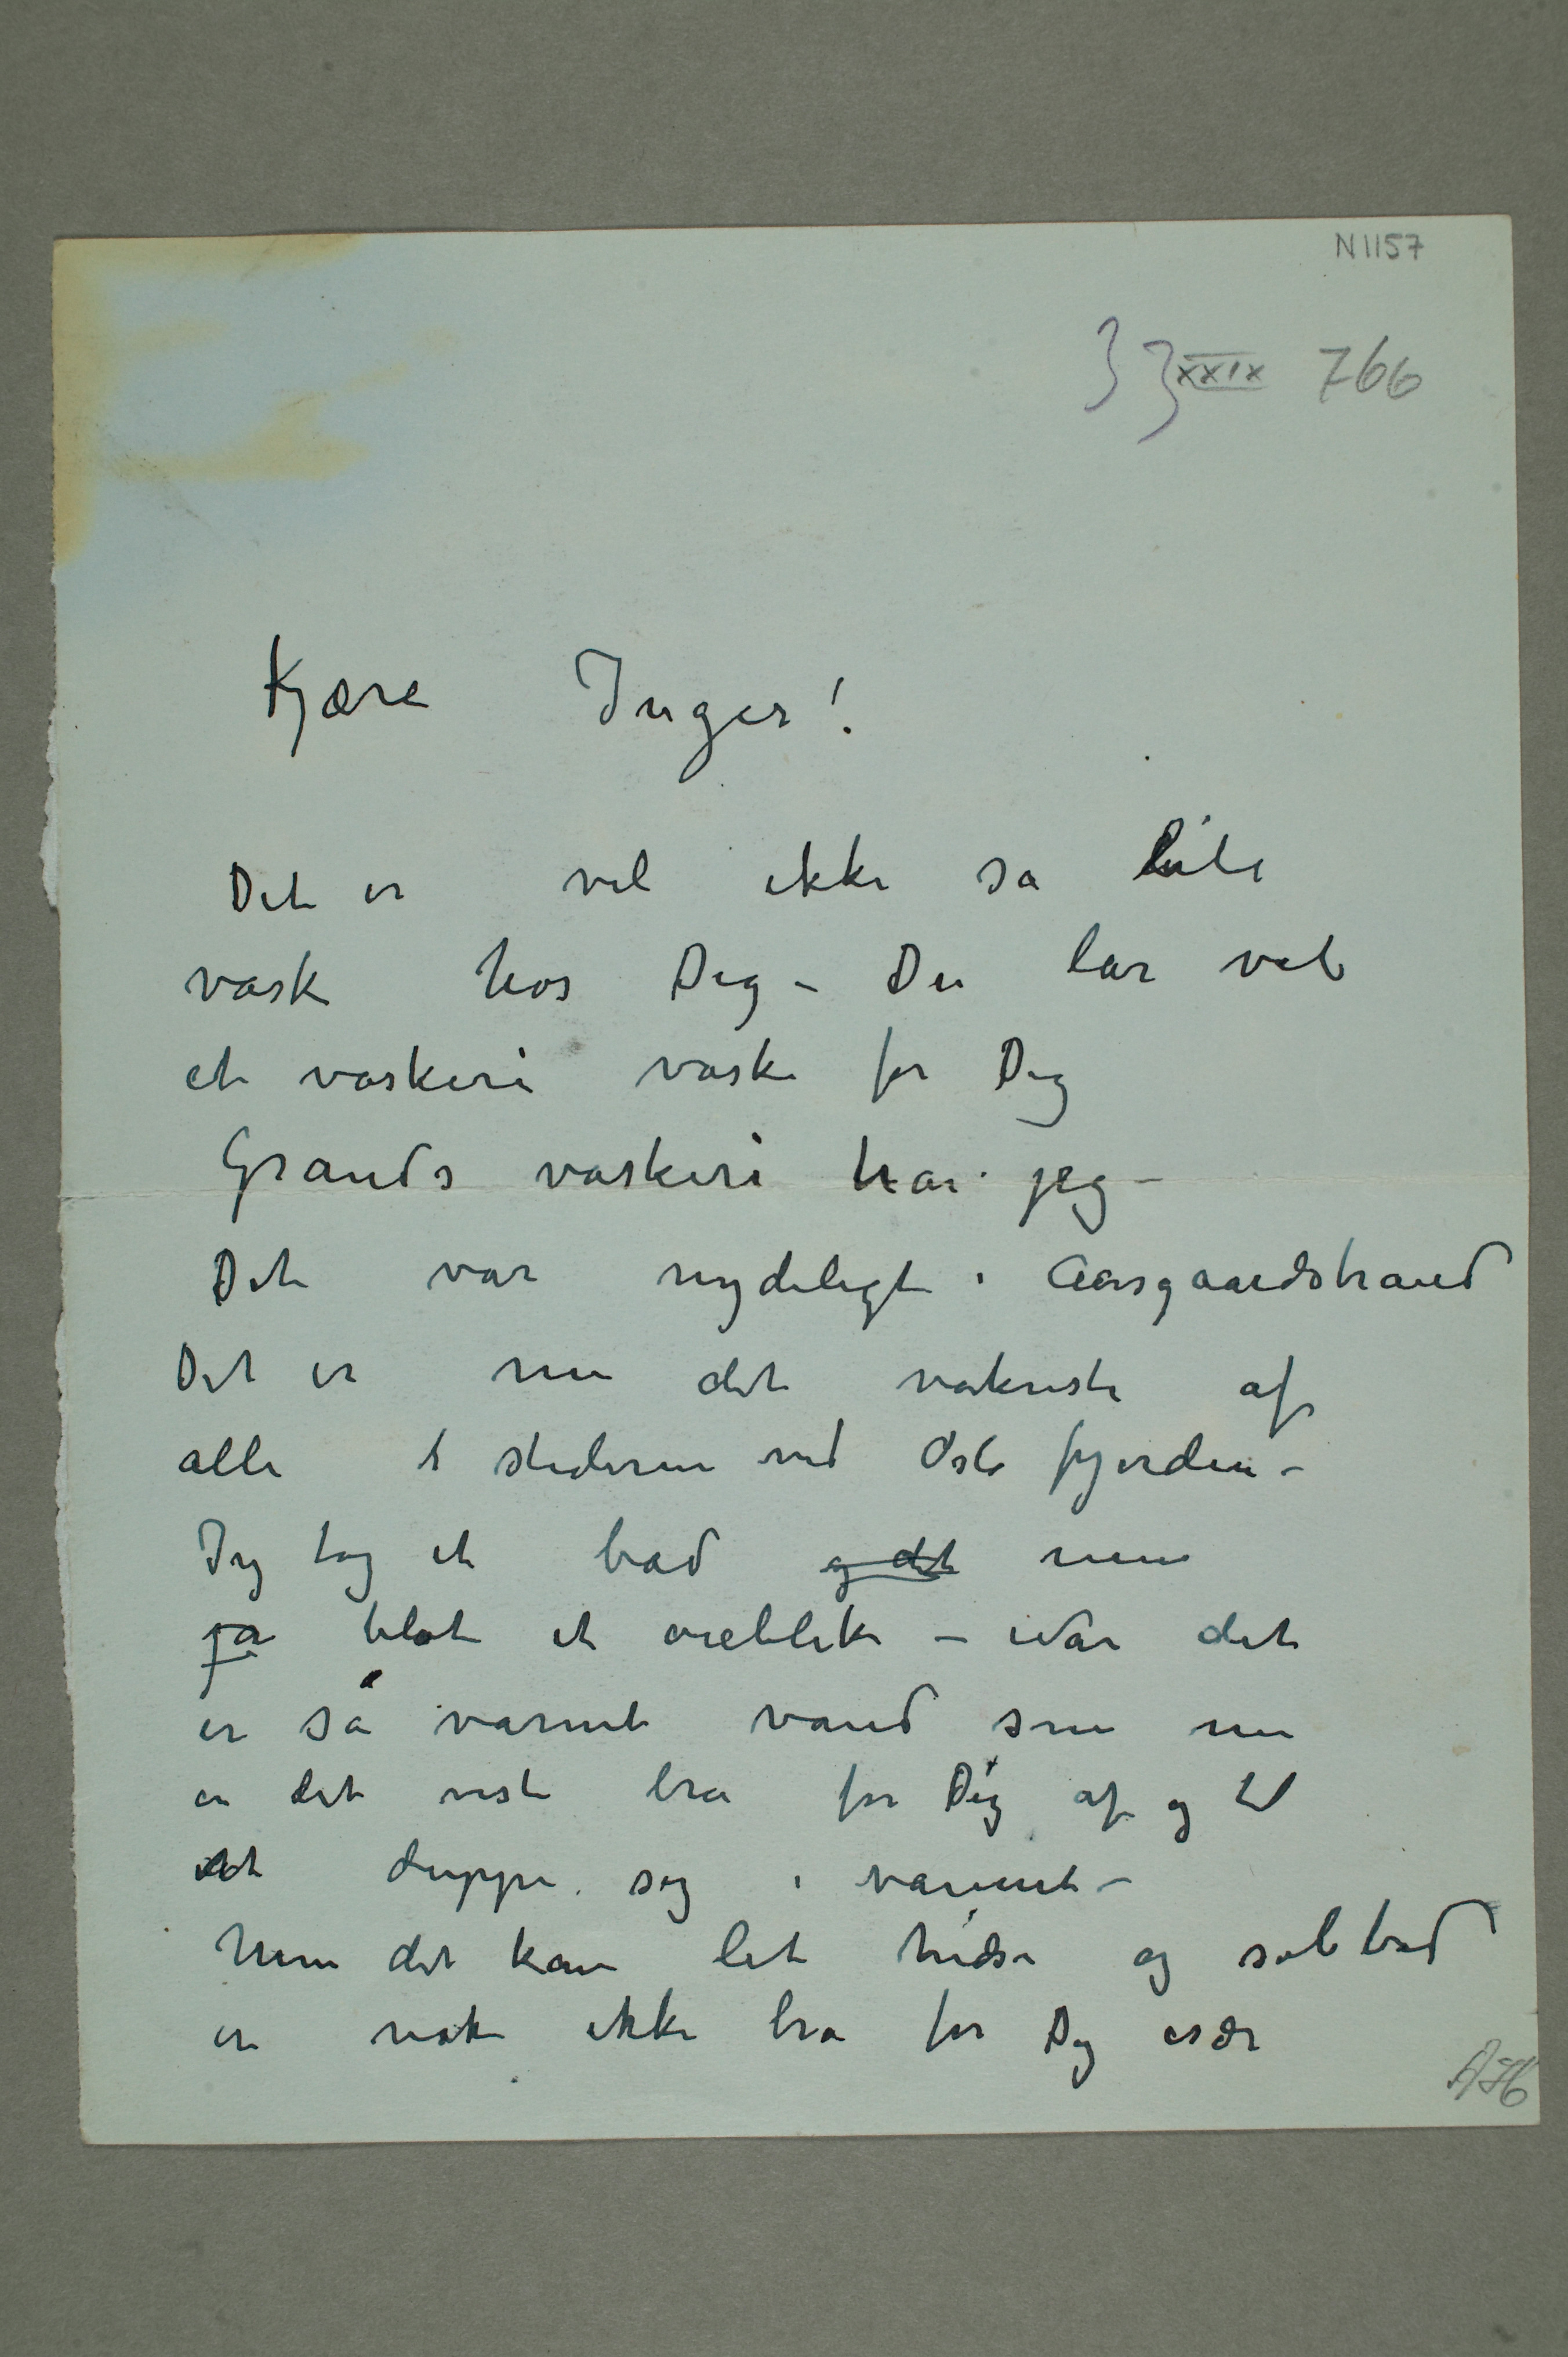 N 1157
33 XXIX 766
Kjære Inger!
Det er vel ikke sa lite
vask hos Dig – Du lar vel
et vaskeri vaske for Dig
Grands vaskeri har jeg –
Det var nydeligt i Aasgaardstrand
Det er nu det vakreste af
alle stederne ved Oslo fjorden –
Jeg tog et bad og det men
ja blot et øieblik – Når det
er så varmt vand som nu
er det vist bra for Dig af og til
at duppe sig i vannet –
Men det kan let hidse og solbad
er nok ikke bra for Dig især